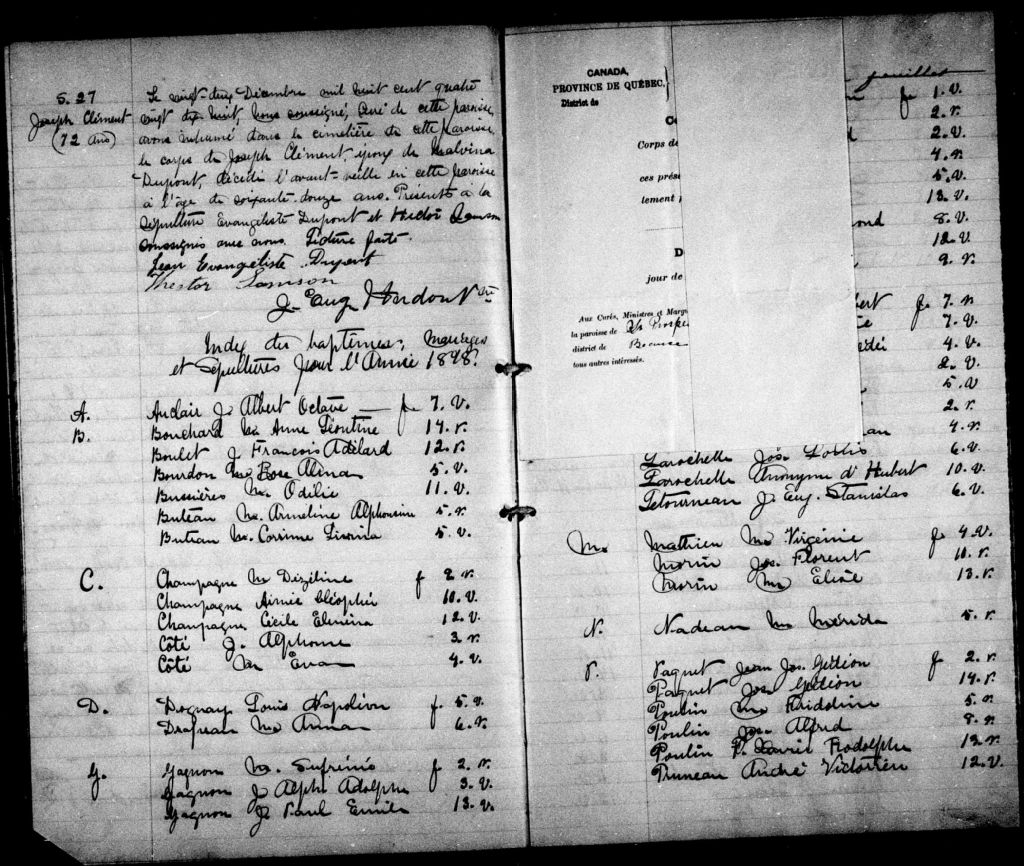 S. 27
Joseph Clément
(72 ans)
Le vingt-deux Décembre mil huit cent quatre
vingt dix huit, nous soussigné, curé de cette paroisse,
avons inhumé dans le cimetière de cette paroisse,
le corps de Joseph Clément, époux de Malvina
Dupont, décédé l'avant-veille en cette paroisse
à l'âge de soixante-douze ans. Présents à la
sépulture Evangeliste Dupont et Hector Samson
soussignés avec nous. Lecture faite.
Jean Evangeliste Dupont
Samson
J. Eug
Index des baptêmes, Mariages
et Sépultures pour l'Année 1898.
A. Auclair J. Albert Octave f. 7. v.
B. Bouchard M. Anne Léontine 14. r.
Boulet J. François Adélard 12. r.
Bourdon M. Rose Alma 5. v.
Bussières M. Odilie 11. v.
Buteau M. Armeline Alphonsine 5. r.
Buteau M. Corinne 5. v.
C. Champagne M. f 2. r.
Champagne Aimée Cléophée 10. v.
Champagne Cécile Elmina 12. v.
Côté J. Alphonse 3. r.
Côté M. Eva 4. v.
D. Louis Napoléon f. 5. v.
Drapeau M. Anna 6. r.
G. Gagnon M. f 2. r.
Gagnon J. Alph. Adolphe 3. v.
Gagnon J. Paul Emile 13. v.
CANADA,
PROVINCE DE QUÉBEC.
District de
Corps de
ces prése
tement
D
jour de
Aux Curés, Ministres et Marg
la paroisse de
district de Beauce
tous autres intéressés.
feuillet
f 1. v.
2. r.
2. v.
4. r.
5. v.
13. v.
ond 8. v.
12. v.
9. r.
bert f. 7. r
7. v.
4. v.
2. v.
5. v
2. r.
4. r.
Larochelle Jos. 6. v.
Larochelle Anonyme d'Hubert 10. v.
Letourneau J. Eug. Stanislas 6. v.
M. Mathieu M. Virginie f 4. v.
Morin Jos. Florent 10. r.
Morin M. 13. r.
N. Nadeau M. Mérida 5. r.
P. Paquet Jean Jos. Gédéon f 2. r.
Paquet Jos. Gédéon 14. r.
Poulin M. 5. r.
Poulin Jos. Alfred 8. r.
Poulin Rodolphe 13. r.
Pruneau André Victorien 12. v.